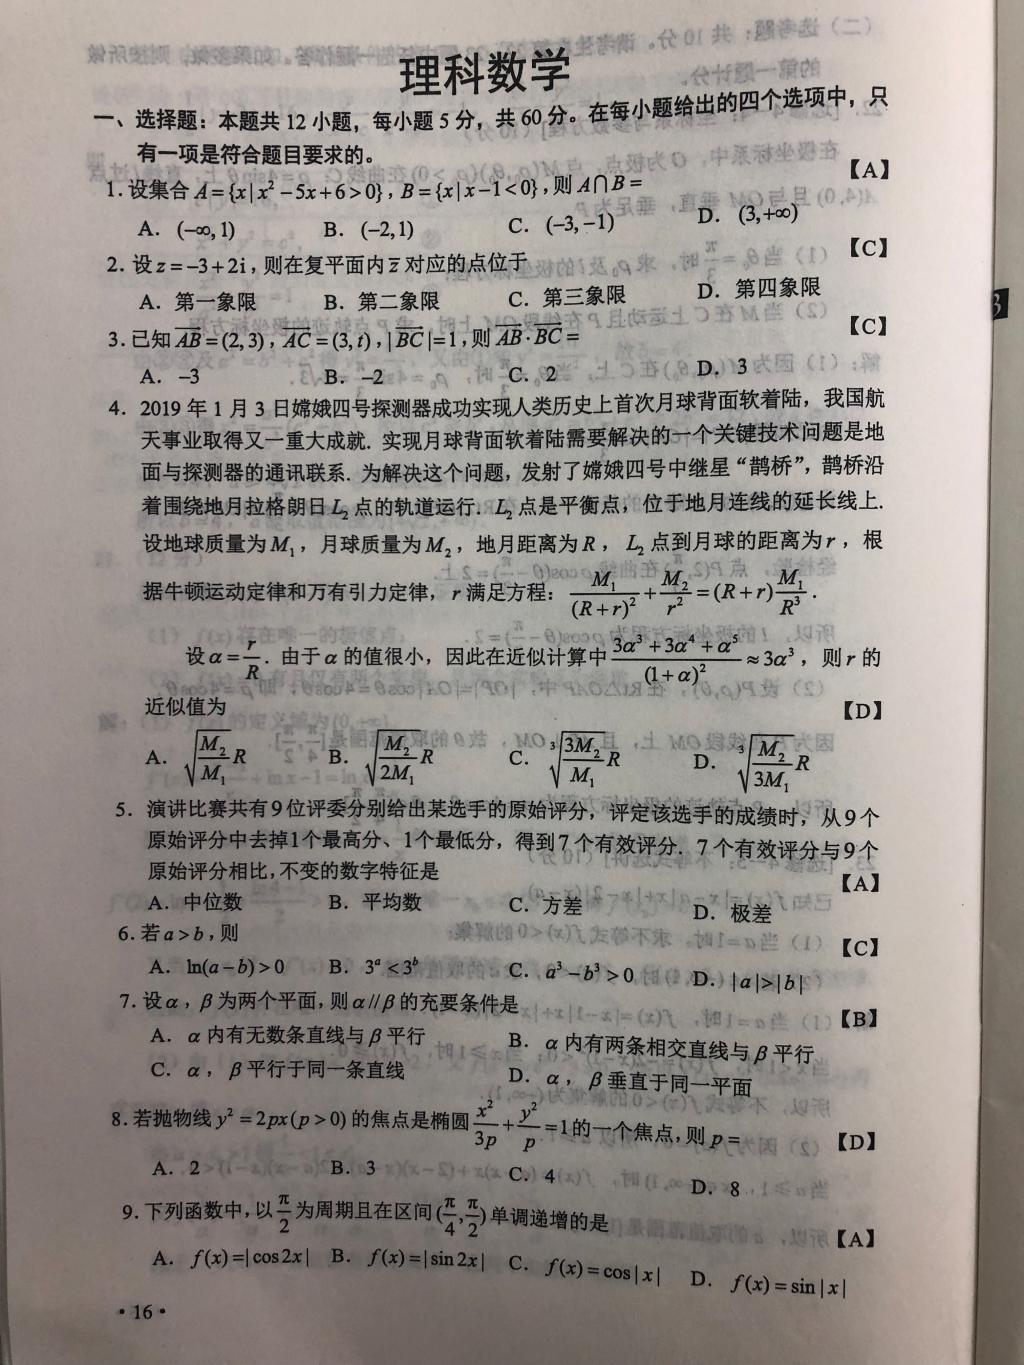 理科数学
一、选择题：本题共 12 小题，每小题 5 分，共 60 分。在每小题给出的四个选项中，只
有一项是符合题目要求的。
1. 设集合 A={x|x²−5x+6>0}，B={x|x−1<0}，则 A∩B= 【A】
A．(−∞,1) B．(−2,1) C．(−3,−1) D．(3,+∞)
2. 设 z=−3+2i，则在复平面内 z̅ 对应的点位于 【C】
A．第一象限 B．第二象限 C．第三象限 D．第四象限
3. 已知 A͞B͞=(2,3)，A͞C͞=(3,t)，|B͞C͞|=1，则 A͞B͞·B͞C͞= 【C】
A．−3 B．−2 C．2 D．3
4．2019 年 1 月 3 日嫦娥四号探测器成功实现人类历史上首次月球背面软着陆，我国航
天事业取得又一重大成就．实现月球背面软着陆需要解决的一个关键技术问题是地
面与探测器的通讯联系．为解决这个问题，发射了嫦娥四号中继星“鹊桥”，鹊桥沿
着围绕地月拉格朗日 L₂ 点的轨道运行．L₂ 点是平衡点，位于地月连线的延长线上．
设地球质量为 M₁，月球质量为 M₂，地月距离为 R，L₂ 点到月球的距离为 r，根
据牛顿运动定律和万有引力定律，r 满足方程：M₁/(R+r)²+M₂/r²=(R+r)M₁/R³．
设 α=r/R．由于 α 的值很小，因此在近似计算中 (3α³+3α⁴+α⁵)/(1+α)²≈3α³，则 r 的
近似值为 【D】
A．√(M₂/M₁)R B．√(M₂/2M₁)R C．³√(3M₂/M₁)R D．³√(M₂/3M₁)R
5．演讲比赛共有 9 位评委分别给出某选手的原始评分，评定该选手的成绩时，从 9 个
原始评分中去掉 1 个最高分、1 个最低分，得到 7 个有效评分．7 个有效评分与 9 个
原始评分相比，不变的数字特征是 【A】
A．中位数 B．平均数 C．方差 D．极差
6. 若 a>b，则 【C】
A．ln(a−b)>0 B．3ᵃ<3ᵇ C．a³−b³>0 D．|a|>|b|
7. 设 α，β 为两个平面，则 α//β 的充要条件是 【B】
A．α 内有无数条直线与 β 平行 B．α 内有两条相交直线与 β 平行
C．α，β 平行于同一条直线 D．α，β 垂直于同一平面
8. 若抛物线 y²=2px(p>0) 的焦点是椭圆 x²/3p+y²/p=1 的一个焦点，则 p= 【D】
A．2 B．3 C．4 D．8
9. 下列函数中，以 π/2 为周期且在区间 (π/4,π/2) 单调递增的是 【A】
A．f(x)=|cos2x| B．f(x)=|sin2x| C．f(x)=cos|x| D．f(x)=sin|x|
·16·